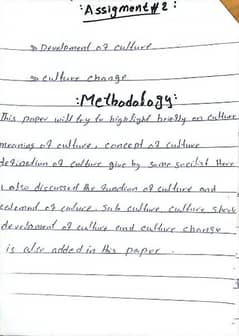 :Assigment # 2:
⇒ Develpment of culture
⇒ culture change
:Methodology:
This paper will try to highlight briefly on culture
meaning of culture, concept of culture
defination of culture give by some socilist Here
i also discussed the function of culture and
culture, sub culture culture shock
develpment of culture and culture change
is also added in this paper